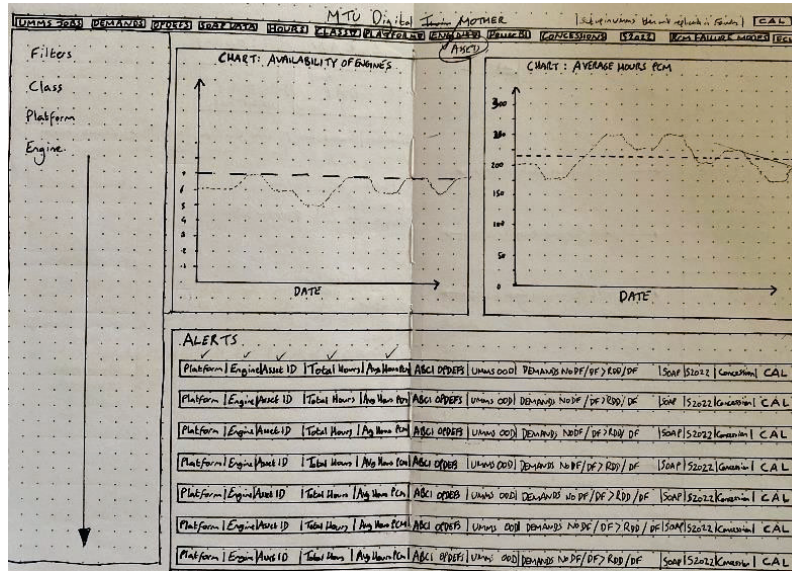 MTU Digital MOTHER
UMMS JOBS DEMANDS OPDEFS SOAP DATA HOURS CLASS PLATFORMS ENGINES POWER BI CONCESSIONS S2022 PCM FAILURE MODES
CAL
ABCD
Filters
Class
Platform
Engine
CHART: AVAILABILITY OF ENGINES
DATE
CHART: AVERAGE HOURS PCM
300
250
200
150
100
50
DATE
ALERTS
Platform | Engine | Asset ID | Total Hours | Avg Hours PCM | ABC1 OPDEFS | UMMS OOD | DEMANDS NO DF/DF>RDD/DF | SOAP | S2022 | Concession | CAL
Platform | Engine | Asset ID | Total Hours | Avg Hours PCM | ABC1 OPDEFS | UMMS OOD | DEMANDS NO DF/DF>RDD/DF | SOAP | S2022 | Concession | CAL
Platform | Engine | Asset ID | Total Hours | Avg Hours PCM | ABC1 OPDEFS | UMMS OOD | DEMANDS NO DF/DF>RDD/DF | SOAP | S2022 | Concession | CAL
Platform | Engine | Asset ID | Total Hours | Avg Hours PCM | ABC1 OPDEFS | UMMS OOD | DEMANDS NO DF/DF>RDD/DF | SOAP | S2022 | Concession | CAL
Platform | Engine | Asset ID | Total Hours | Avg Hours PCM | ABC1 OPDEFS | UMMS OOD | DEMANDS NO DF/DF>RDD/DF | SOAP | S2022 | Concession | CAL
Platform | Engine | Asset ID | Total Hours | Avg Hours PCM | ABC1 OPDEFS | UMMS OOD | DEMANDS NO DF/DF>RDD/DF | SOAP | S2022 | Concession | CAL
Platform | Engine | Asset ID | Total Hours | Avg Hours PCM | ABC1 OPDEFS | UMMS OOD | DEMANDS NO DF/DF>RDD/DF | SOAP | S2022 | Concession | CAL